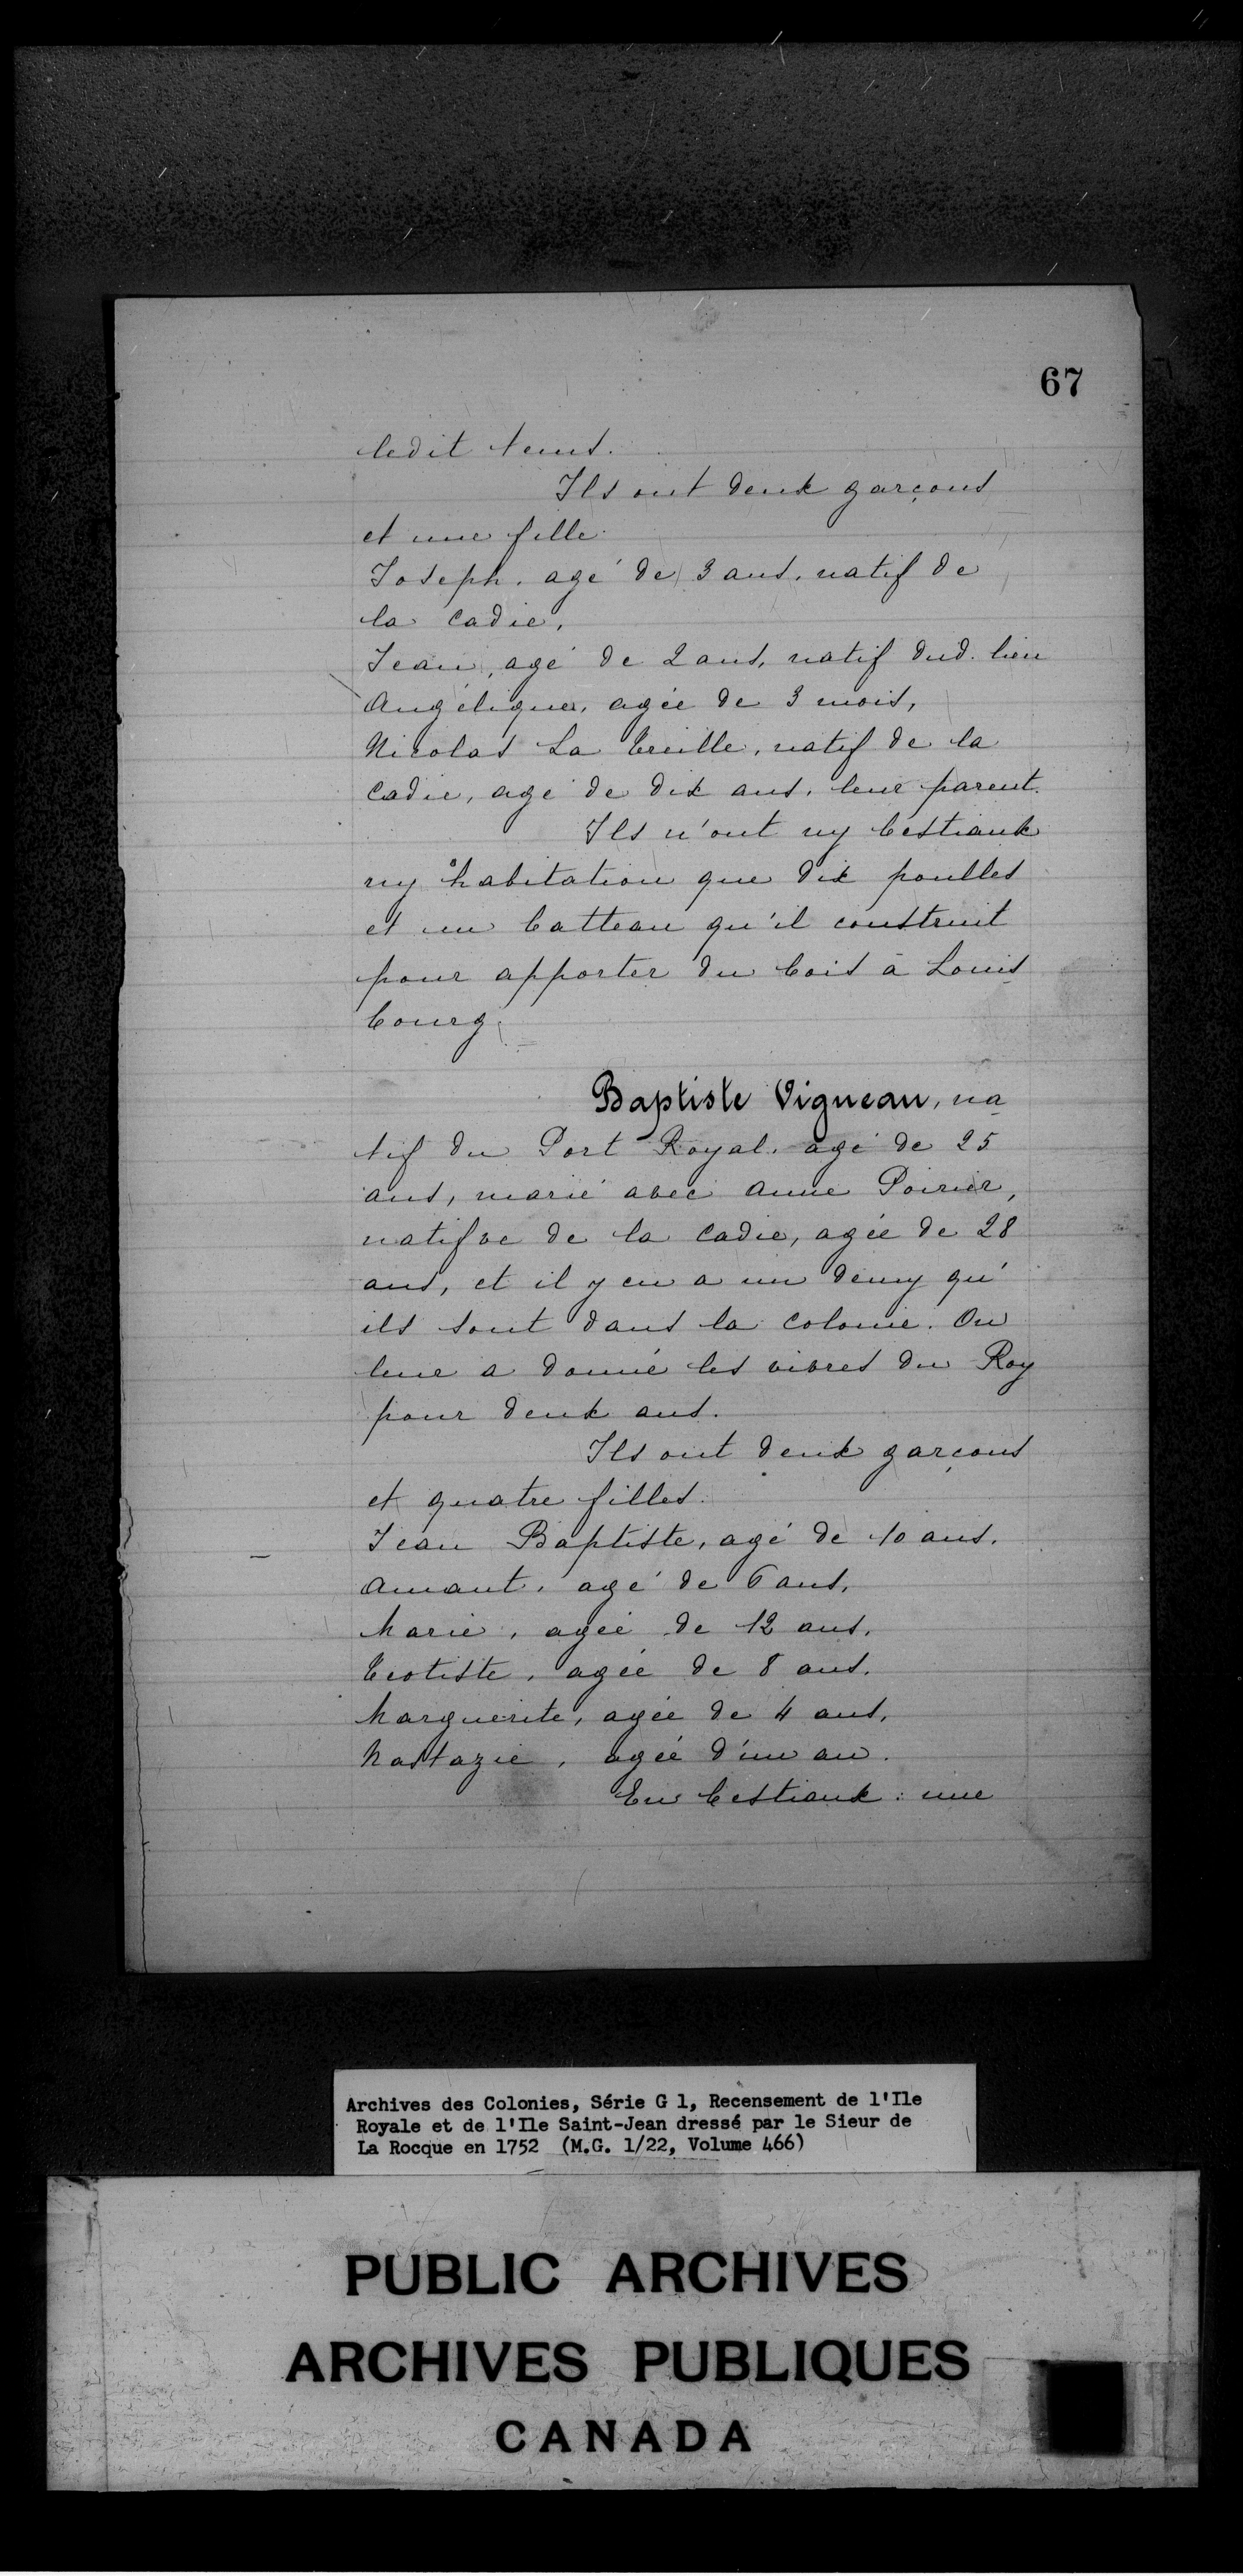 67
ledit tems.
Ils ont deux garçons
et une fille.
Joseph, agé de 3 ans, natif de
la Cadie,
Jean, agé de 2 ans, natif dud. lieu
Angélique, agée de 3 mois,
Nicolas La Treille, natif de la
Cadie, agé de dix ans, leur parent.
Ils n'ont ny bestiaux
ny habitation que dix poulles
et un batteau qu'il construit
pour apporter du bois à Louis
bourg.
Baptiste Vigneau, na
tif du Port Royal, agé de 25
ans, marié avec Anne Poirier,
natifve de la Cadie, agée de 28
ans, et il y en a un demy qu'
ils sont dans la colonie. On
leur a donné les vivres du Roy
pour deux ans.
Ils ont deux garçons
et quatre filles.
Jean Baptiste, agé de 10 ans.
Amant, agé de 6 ans,
Marie, agée de 12 ans,
Teotiste, agée de 8 ans.
Marguerite, agée de 4 ans,
Nastazie, agée d'un an.
En bestiaux : une
Archives des Colonies, Série G 1, Recensement de l'Ile
Royale et de l'Ile Saint-Jean dressé par le Sieur de
La Rocque en 1752 (M.G. 1/22, Volume 466)
PUBLIC ARCHIVES
ARCHIVES PUBLIQUES
CANADA